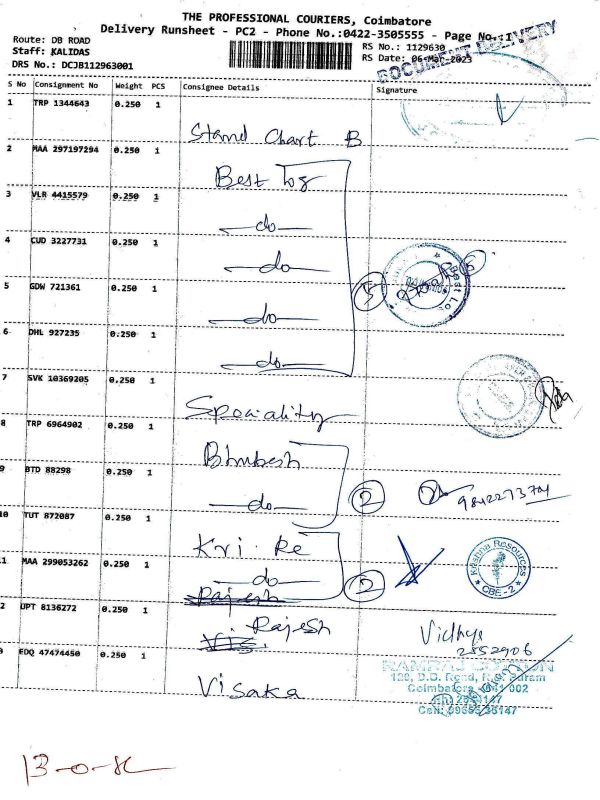 THE PROFESSIONAL COURIERS, Coimbatore
Delivery Runsheet - PC2 - Phone No.:0422-3505555 - Page No.:1
Route: DB ROAD
Staff: KALIDAS
DRS No.: DCJB112963001
RS No.: 1129630
RS Date: 06-Mar-2023
DOCUMENT DELIVERY
S No Consignment No Weight PCS Consignee Details Signature
1 TRP 1344643 0.250 1
Stand Chart B
2 MAA 297197294 0.250 1
Best Log
3 VLR 4415579 0.250 1
do
4 CUD 3227731 0.250 1
do
5 GDW 721361 0.250 1
do
5
Best Lo
6 DHL 927235 0.250 1
do
7 SVK 10369205 0.250 1
Speciality
8 TRP 6964902 0.250 1
Bhubesh
9 BTD 88298 0.250 1
do
2
10 TUT 872087 0.250 1
Kri. Re
11 MAA 299053262 0.250 1
do
2
Krishna Resources
CBE-2
2 UPT 8136272 0.250 1
Rajesh
Vidhya
2552906
3 EDQ 47474450 0.250 1
Visaka
RAMRAJ COTTON
Coimbatore - 641 002
13-o-k